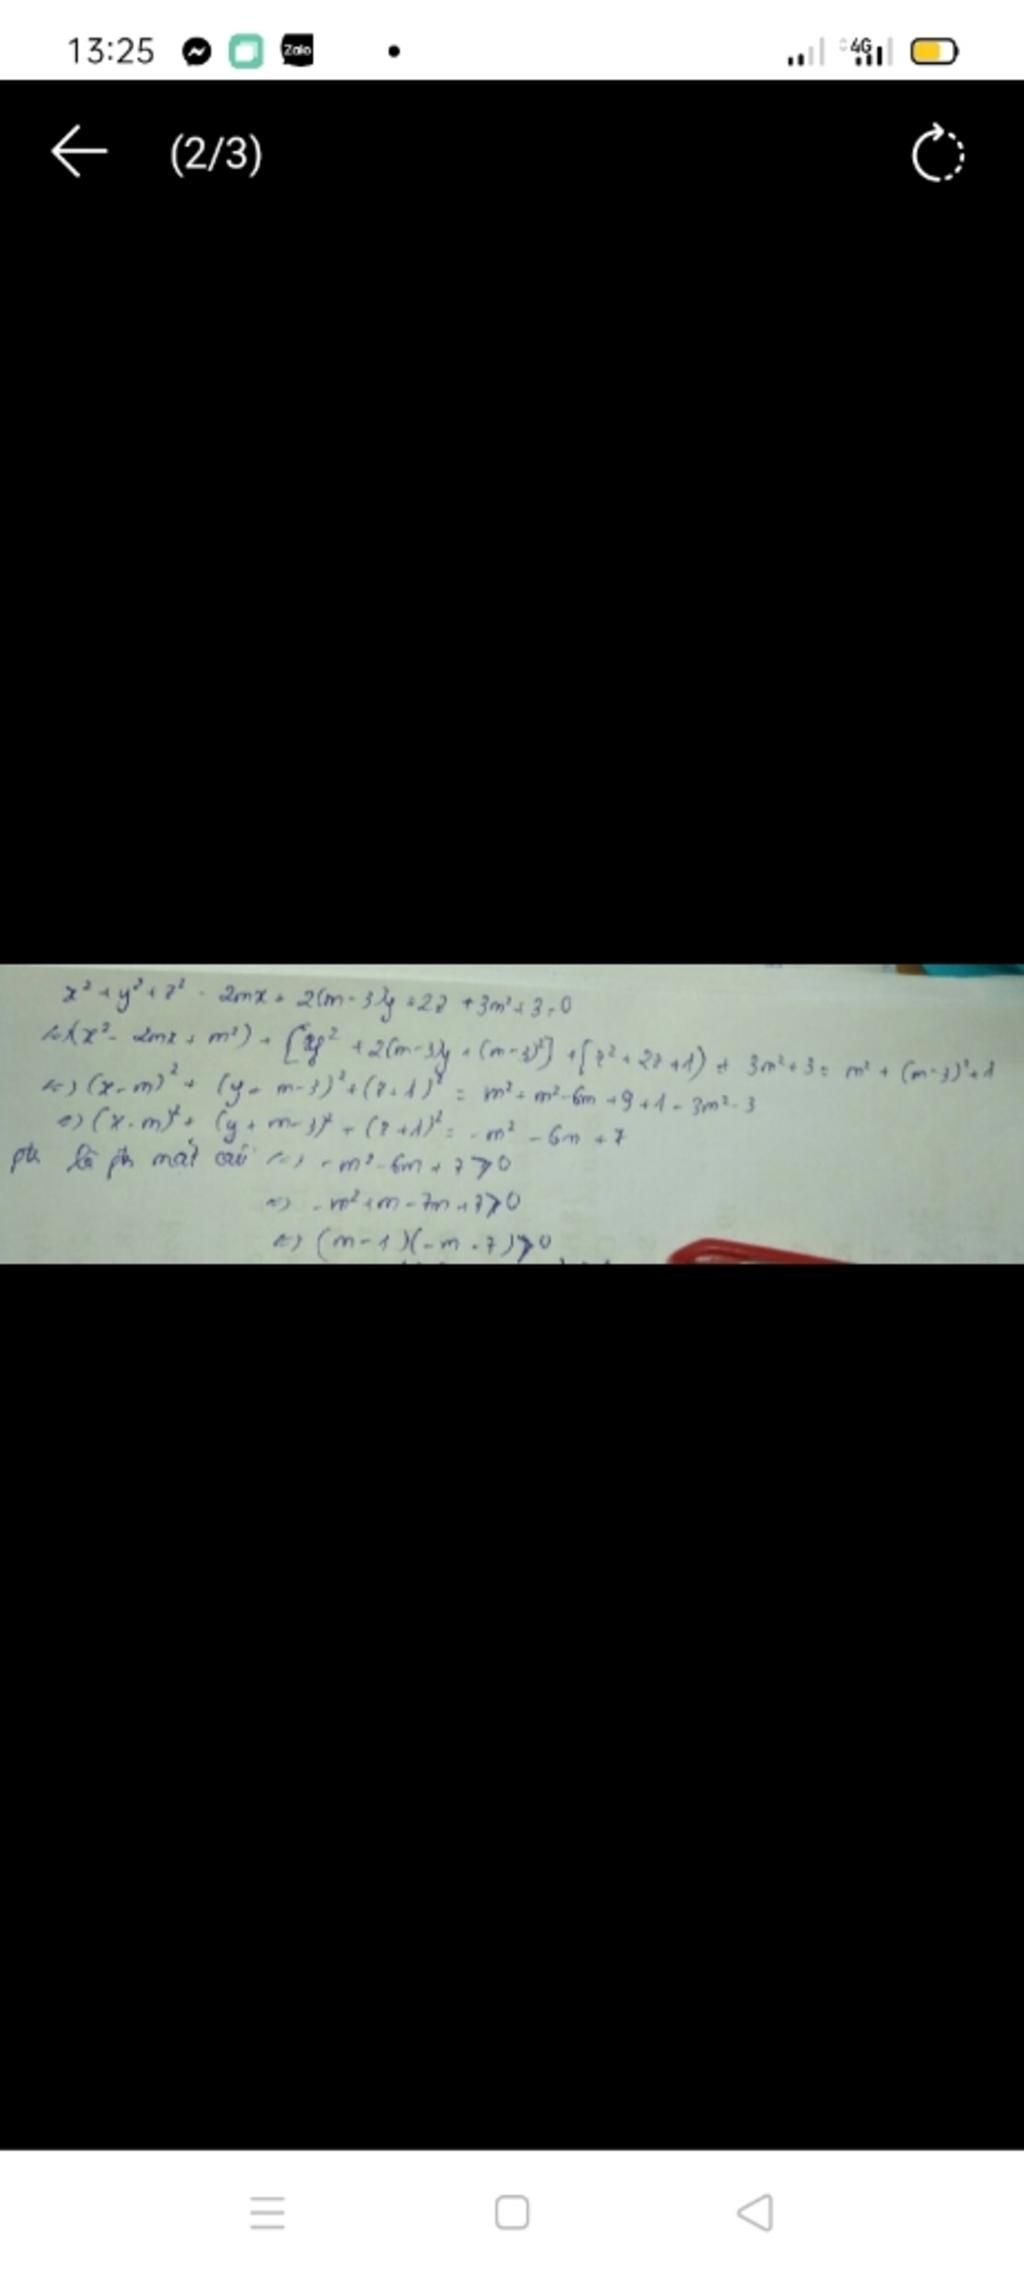 13:25 Zalo 4G
(2/3)
x² + y² + z² - 2mx + 2(m-3)y + 2z + 3m² + 3 = 0
<=> (x² - 2mx + m²) + [y² + 2(m-3)y + (m-3)²] + [z² + 2z + 1) + 3m² + 3 = m² + (m-3)² + 1
<=> (x-m)² + (y + m-3)² + (z+1)² = m² + m² - 6m + 9 + 1 - 3m² - 3
<=> (x-m)² + (y + m-3)² + (z+1)² = -m² - 6m + 7
pt là pt mặt cầu <=> -m² - 6m + 7 > 0
<=> -m² + m - 7m + 7 > 0
<=> (m-1)(-m-7) > 0